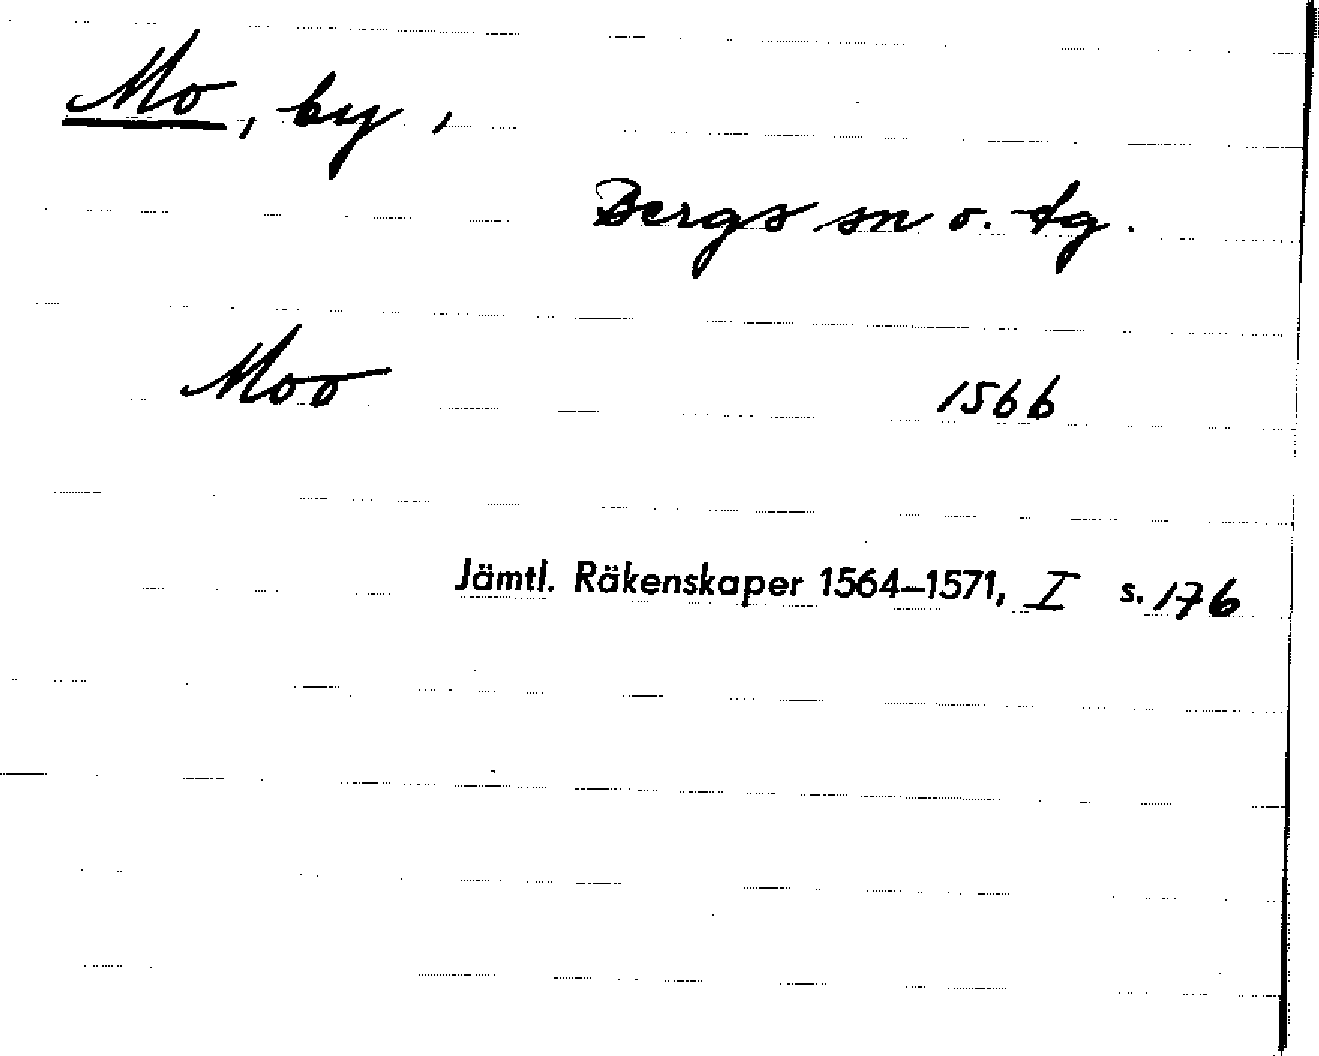 Mo, by,
Bergs sn o. tg.
Moo 1566
Jämtl. Räkenskaper 1564–1571, I s. 176